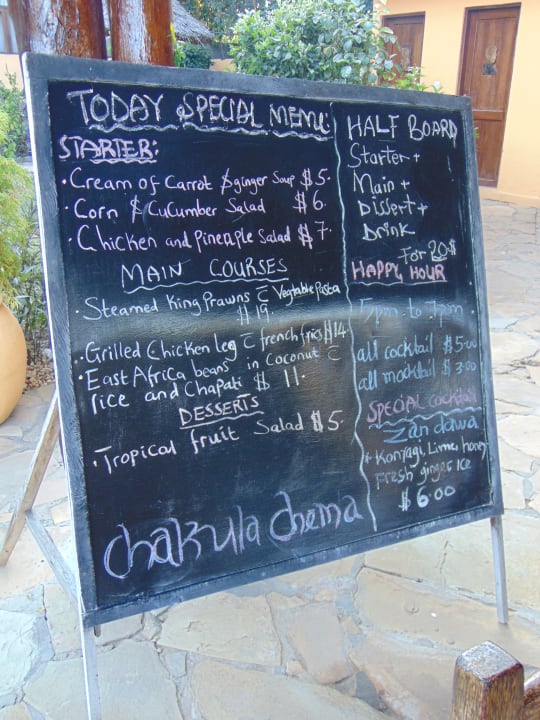 TODAY SPECIAL MENU:
STARTER:
· Cream of Carrot & ginger Soup $5.
· Corn & CuCumber Salad $6.
· Chicken and Pineaple Salad $7.
MAIN COURSES
· Steamed King Prawns c̄ Vegtable Pasta
$19.
· Grilled Chicken leg c̄ french fries $14
· East Africa beans in Coconut c̄
rice and Chapati $ 11.
DESSERTS
· Tropical fruit Salad $5.
Chakula Chema
HALF BOARD
Starter +
Main +
Dissert +
Drink
For 20$
HAPPY HOUR
5pm to 7pm
all cocktail $5.00
all mocktail $3.00
SPECIAL Cocktail
Zan dawa
* Konyagi, Lime, honey
Fresh ginger ice
$6.00